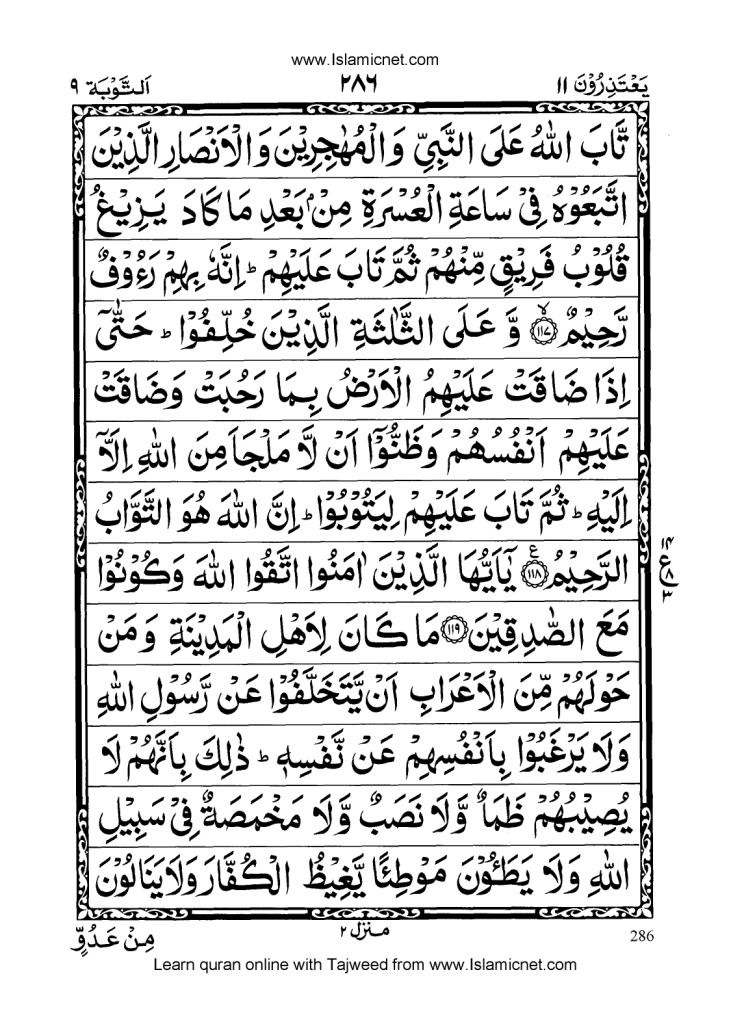 www.Islamicnet.com
يَعْتَذِرُوْنَ ١١ ٢٨٦ اَلتَّوْبَة ٩
تَّابَ اللّٰهُ عَلَى النَّبِىِّ وَالْمُهٰجِرِيْنَ وَالْاَنْصَارِ الَّذِيْنَ
اتَّبَعُوْهُ فِىْ سَاعَةِ الْعُسْرَةِ مِنْۢ بَعْدِ مَا كَادَ يَزِيْغُ
قُلُوْبُ فَرِيْقٍ مِّنْهُمْ ثُمَّ تَابَ عَلَيْهِمْ ؕ اِنَّهٗ بِهِمْ رَءُوْفٌ
رَّحِيْمٌ ۙ‏﴿۱۱۷﴾ وَّ عَلَى الثَّلٰثَةِ الَّذِيْنَ خُلِّفُوْا ؕ حَتّٰۤى
اِذَا ضَاقَتْ عَلَيْهِمُ الْاَرْضُ بِمَا رَحُبَتْ وَضَاقَتْ
عَلَيْهِمْ اَنْفُسُهُمْ وَظَنُّوْۤا اَنْ لَّا مَلْجَاَ مِنَ اللّٰهِ اِلَّاۤ
اِلَيْهِ ؕ ثُمَّ تَابَ عَلَيْهِمْ لِيَتُوْبُوْا ؕ اِنَّ اللّٰهَ هُوَ التَّوَّابُ
الرَّحِيْمُ ﴿۱۱۸﴾ ع يٰۤاَيُّهَا الَّذِيْنَ اٰمَنُوا اتَّقُوا اللّٰهَ وَكُوْنُوْا
١٤
ع ٨
٣
مَعَ الصّٰدِقِيْنَ ﴿۱۱۹﴾ مَا كَانَ لِاَهْلِ الْمَدِيْنَةِ وَمَنْ
حَوْلَهُمْ مِّنَ الْاَعْرَابِ اَنْ يَّتَخَلَّفُوْا عَنْ رَّسُوْلِ اللّٰهِ
وَلَا يَرْغَبُوْا بِاَنْفُسِهِمْ عَنْ نَّفْسِهٖ ؕ ذٰلِكَ بِاَنَّهُمْ لَا
يُصِيْبُهُمْ ظَمَاٌ وَّلَا نَصَبٌ وَّلَا مَخْمَصَةٌ فِىْ سَبِيْلِ
اللّٰهِ وَلَا يَطَـُٔوْنَ مَوْطِئًا يَّغِيْظُ الْكُفَّارَ وَلَا يَنَالُوْنَ
286 منزل ٢ مِنْ عَدُوٍّ
Learn quran online with Tajweed from www.Islamicnet.com